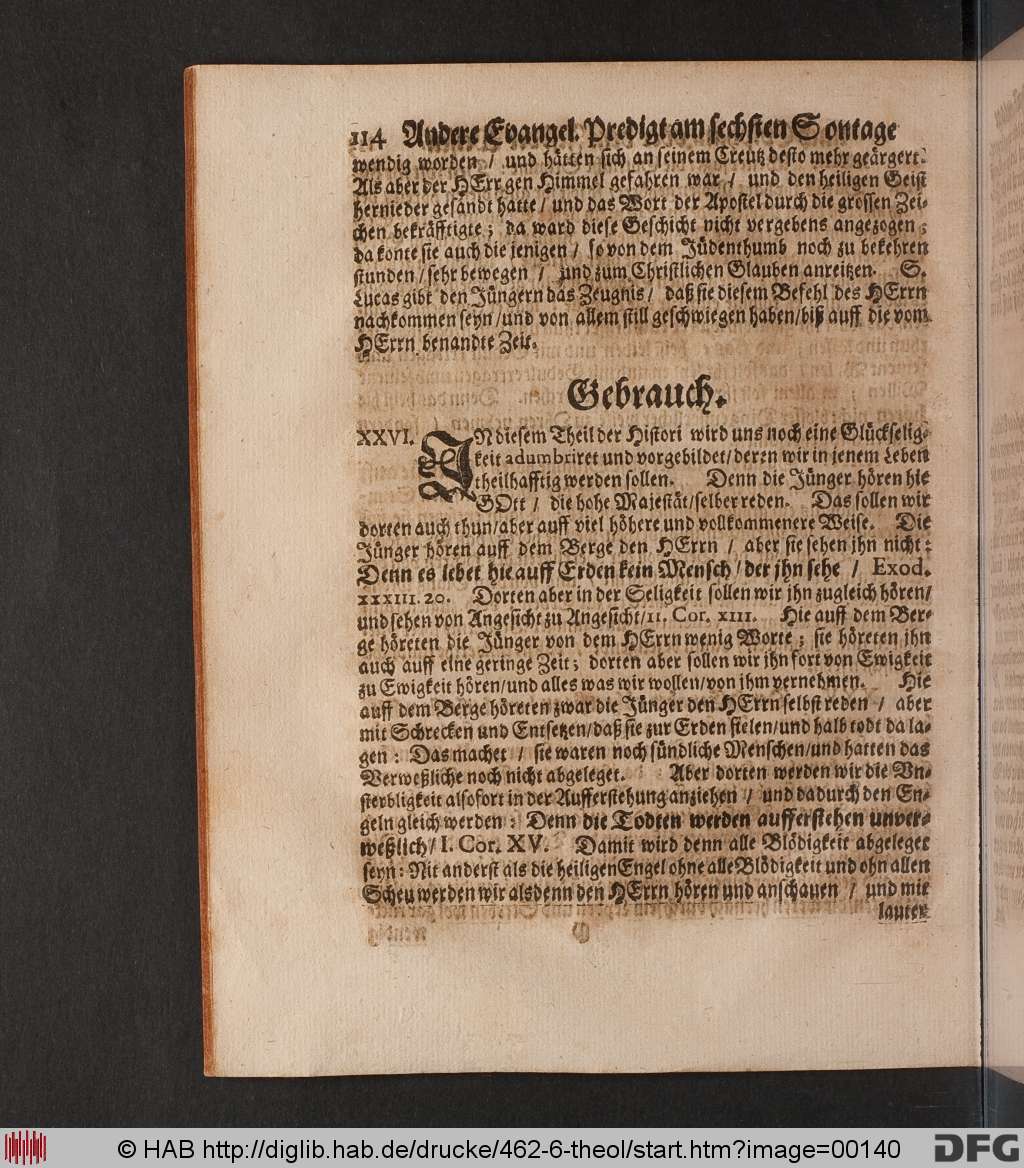 114 Andere Evangel. Predigt am sechsten Sontage
wendig worden / und hätten sich an seinem Creutz desto mehr geärgert.
Als aber der HErr gen Himmel gefahren war / und den heiligen Geist
hernieder gesandt hatte / und das Wort der Apostel durch die grossen Zei-
chen bekräfftigte; da ward diese Geschicht nicht vergebens angezogen;
da konte sie auch die jenigen / so von dem Jüdenthumb noch zu bekehren
stunden / sehr bewegen / und zum Christlichen Glauben anreitzen. S.
Lucas gibt den Jüngern das Zeugnis / daß sie diesem Befehl des HErrn
nachkommen seyn / und von allem still geschwiegen haben / biß auff die vom
HErrn benandte Zeit.
Gebrauch.
XXVI. IN diesem Theil der Histori wird uns noch eine Glückselig-
keit adumbriret und vorgebildet / deren wir in jenem Leben
theilhafftig werden sollen. Denn die Jünger hören hie
GOtt / die hohe Majestät / selber reden. Das sollen wir
dorten auch thun / aber auff viel höhere und vollkommenere Weise. Die
Jünger hören auff dem Berge den HErrn / aber sie sehen jhn nicht:
Denn es lebet hie auff Erden kein Mensch / der jhn sehe / Exod.
XXXIII. 20. Dorten aber in der Seligkeit sollen wir jhn zugleich hören /
und sehen von Angesicht zu Angesicht / II. Cor. XIII. Hie auff dem Ber-
ge höreten die Jünger von dem HErrn wenig Worte; sie höreten jhn
auch auff eine geringe Zeit; dorten aber sollen wir jhn fort von Ewigkeit
zu Ewigkeit hören / und alles was wir wollen / von jhm vernehmen. Hie
auff dem Berge höreten zwar die Jünger den HErrn selbst reden / aber
mit Schrecken und Entsetzen / daß sie zur Erden fielen / und halb todt da la-
gen: Das machet / sie waren noch sündliche Menschen / und hatten das
Verweßliche noch nicht abgeleget. Aber dorten werden wir die Vn-
sterbligkeit alsofort in der Aufferstehung anziehen / und dadurch den En-
geln gleich werden: Denn die Todten werden aufferstehen unver-
weßlich / I. Cor. XV. Damit wird denn alle Blödigkeit abgeleget
seyn: Nit anderst als die heiligen Engel ohne alle Blödigkeit und ohn allen
Scheu werden wir alsdenn den HErrn hören und anschauen / und mit
lauter
© HAB http://diglib.hab.de/drucke/462-6-theol/start.htm?image=00140
DFG